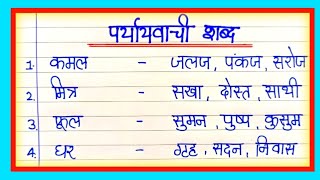 पर्यायवाची शब्द
1. कमल - जलज, पंकज, सरोज
2. मित्र - सखा, दोस्त, साथी
3. फूल - सुमन, पुष्प, कुसुम
4. घर - गृह, सदन, निवास